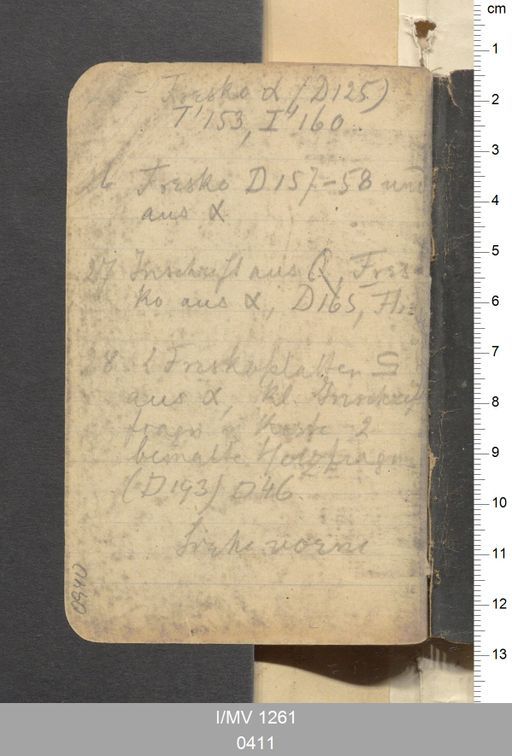 - Fresko α (D125)
T'153, I'160.
26 Fresko D157-58 und
aus α
27 Inschrift aus Q, Fres-
ko aus α, D165,
28. 2 Freskoplatten
aus α, kl. Inschrift
fragm 2
bemalte Holzfragm
(D193) D46
Siehe vorne
0940
cm
1
2
3
4
5
6
7
8
9
10
11
12
13
I/MV 1261
0411